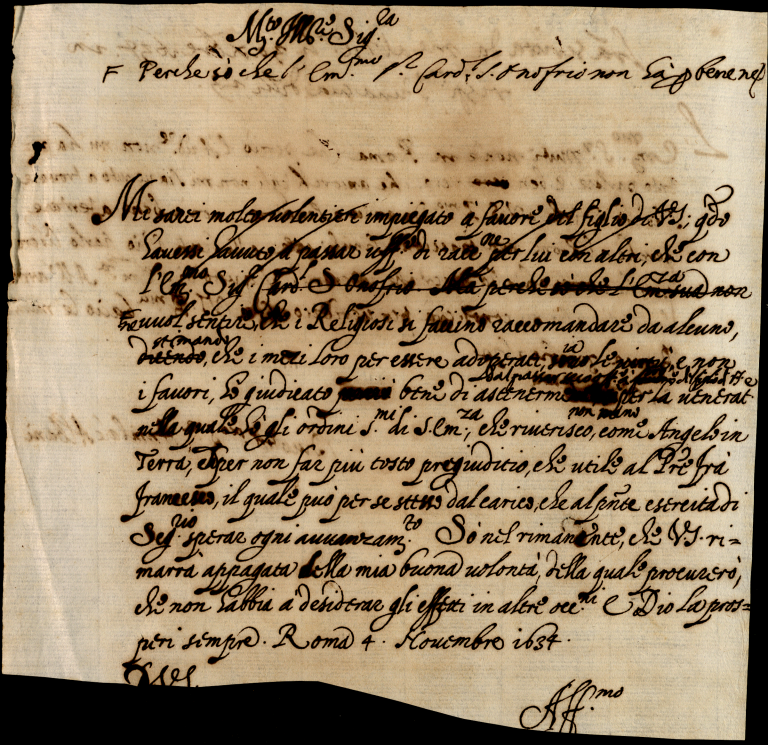 M.to Ill.re Sig.ra
F Perche so che l' Em.mo S.r Card.l S. Onofrio non hà p bene ne
Mi sarei molto volentieri impiegato à favore del figlio di V.S. qdo
havessi havuto à passar uff.o di racc.ne per lui con altri, che con
l'Em.mo Sig.r Card.l S. Onofrio. Mà perche so che l'Em.za sua non
vuol sentire, che i Religiosi si faccino raccomandare da alcuno,
stimando
dicendo, che i mezi loro per essere adoperati, sono le virtù, e non
i favori, hò giudicato bene di astenerme per la venerat
non meno
nella quale hò gli ordini S.mi di S. Em.za, che riverisco, come Angelo in
Terra, che per non far più tosto pregiuditio, che utile al Pre frà
Francesco, il quale può per se stesso dal carico, che al pnte esercita di
Seg.rio sperar ogni avvanzam.to Sò nel rimanente, che V.S. ri=
marrà appagata della mia buona volontà, della quale procurerò,
che non habbia à desiderar gli effetti in altre occ.ni E Dio la pros=
peri sempre. Roma 4. Novembre 1634.
D V.S.
Aff.mo